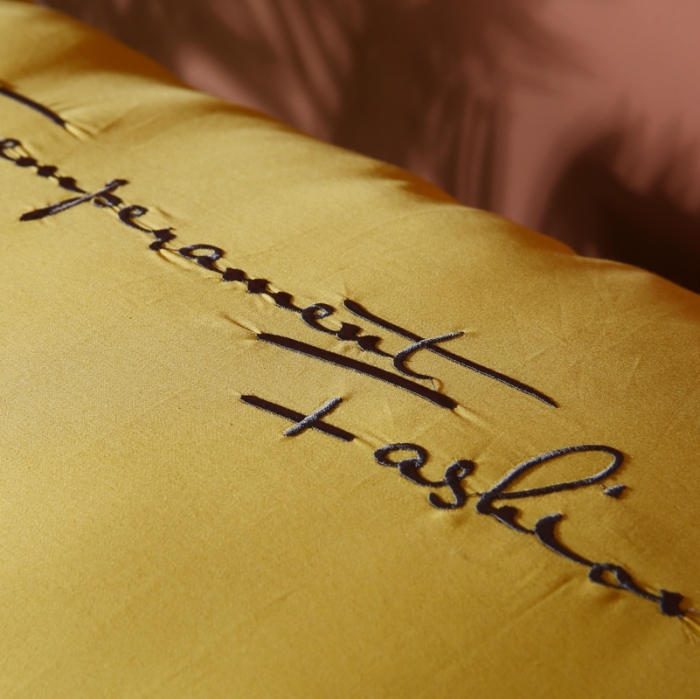 Temperament
Fashion